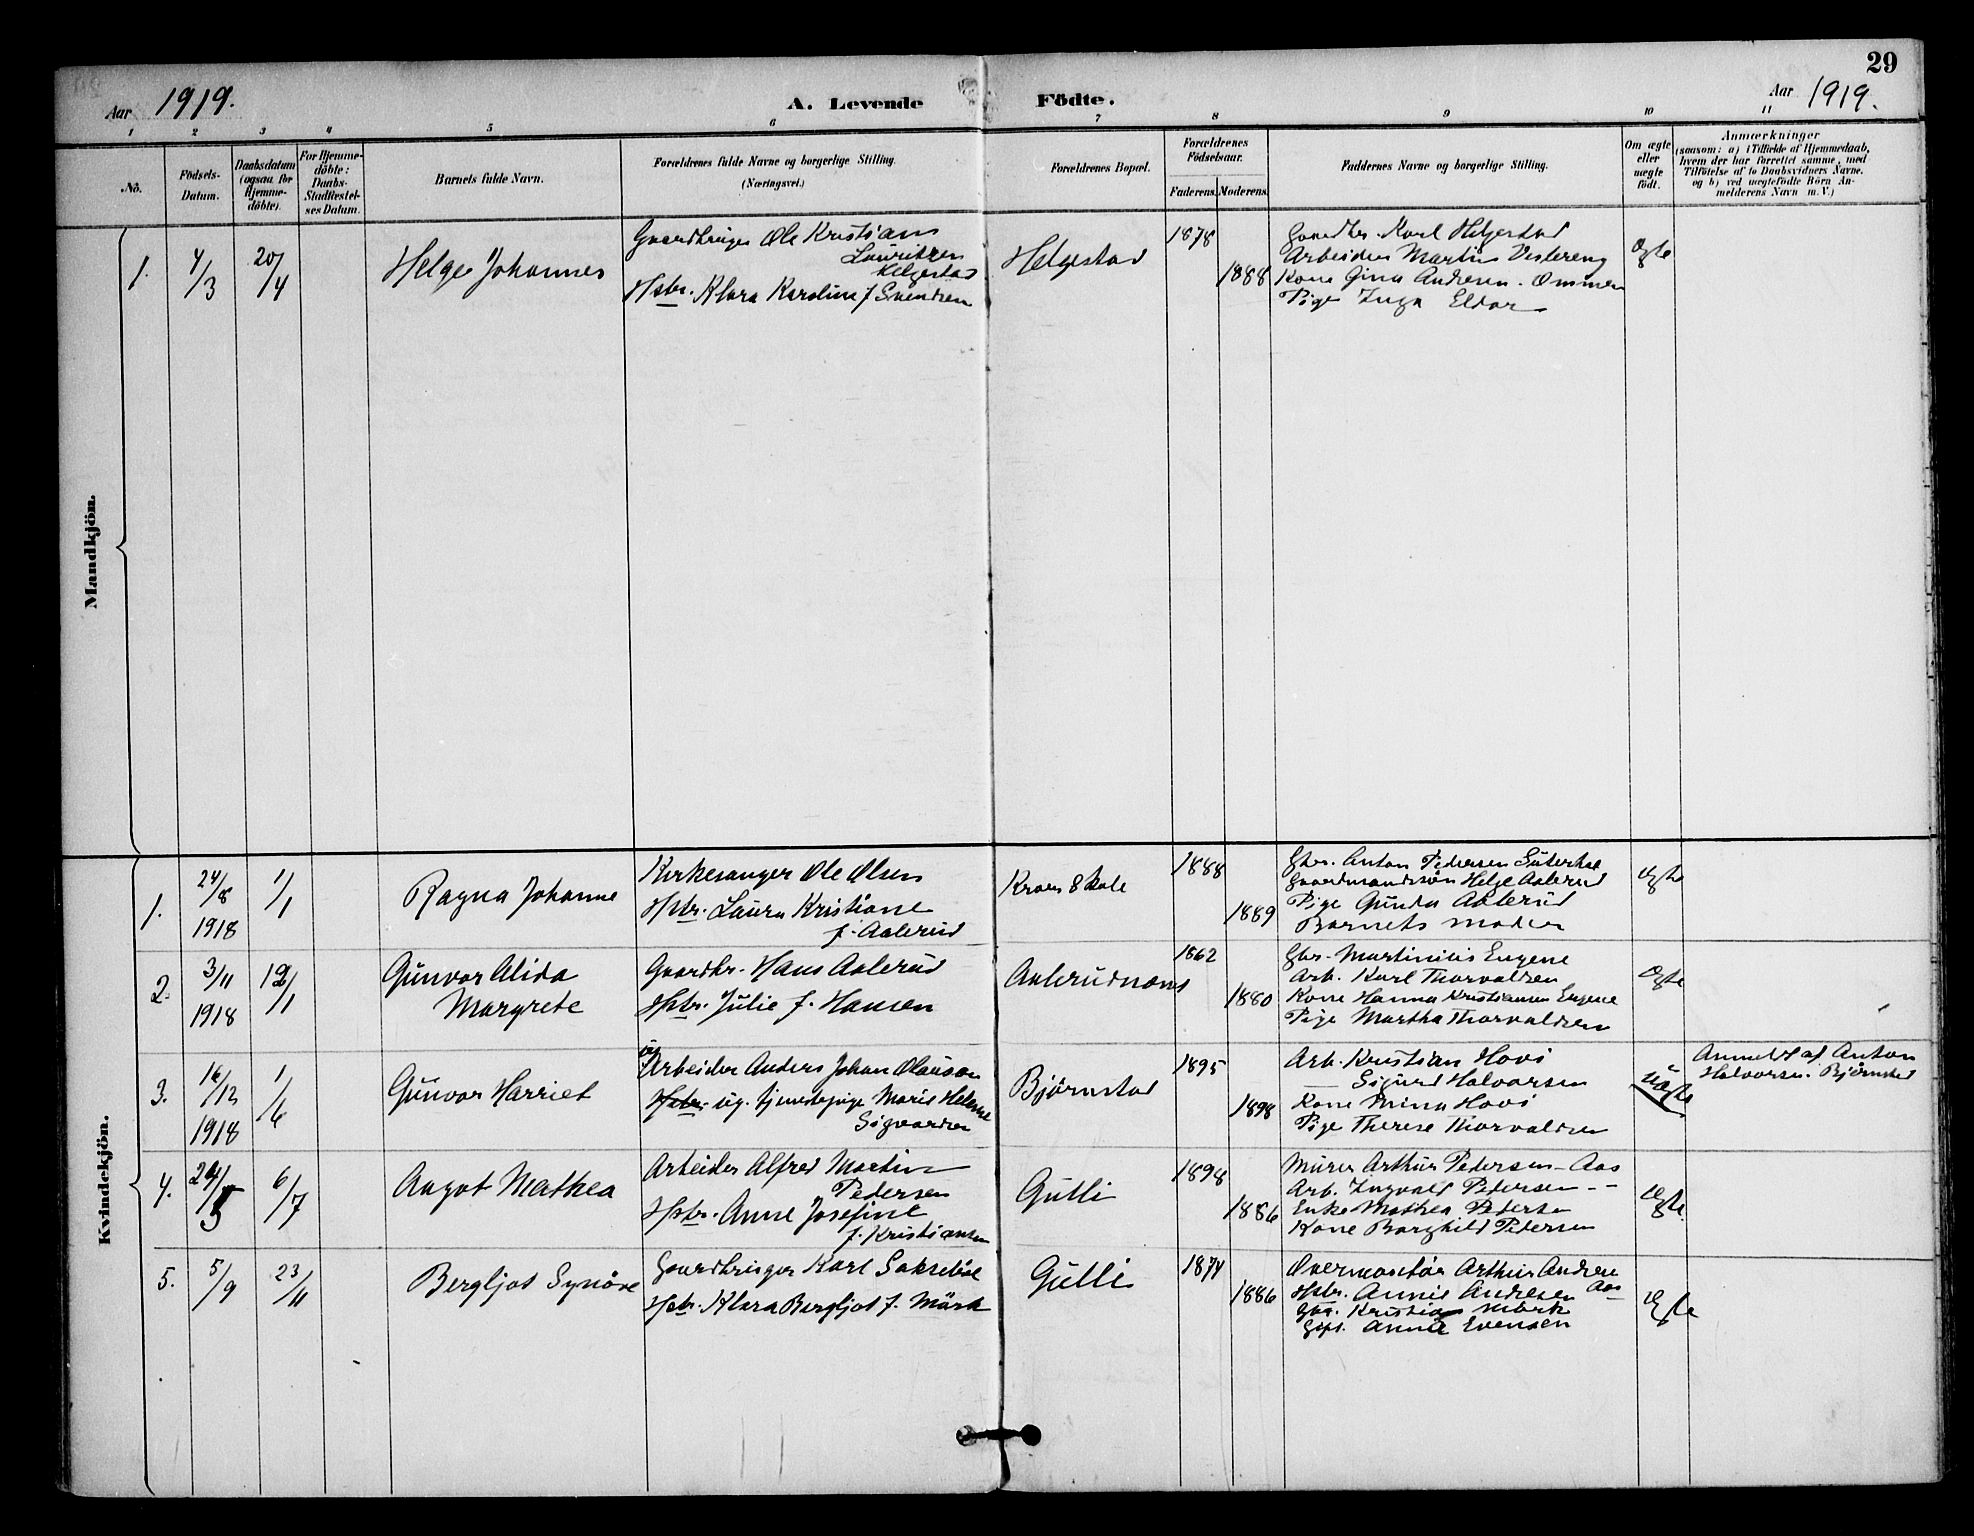 29
Aar 1919.
A. Levende Födte.
Aar 1919.
1 2 3 4 5 6 7 8 9 10 11
No.
Födsels-Datum.
Daabsdatum (ogsaa for Hjemme-döbte).
For Hjemme-döbte: Daabs-Stadfæstel-ses Datum.
Barnets fulde Navn.
Forældrenes fulde Navne og borgerlige Stilling. (Næringsvei.)
Forældrenes Bopæl.
Forældrenes Födselsaar.
Faderens. Moderens.
Faddernes Navne og borgerlige Stilling.
Om ægte eller uægte födt.
Anmærkninger
(saasom: a) i Tilfælde af Hjemmedaab,
hvem der har forrettet samme, med
Tilföielse af to Daabsvidners Navne.
og b) ved uægtefödte Börn An-
melderens Navn m. V.)
Mandkjön.
1. 4/3 20/4
Helge Johannes
Gaardbruger Ole Kristians
Lauritzen
Helgestad
Hstr. Klara Karoline f. Svendsen
Helgestad
1878
1888
Gaardbr. Karl Helgestad
Arbeider Martin Vestereng
Kone Gina Andresen. Ommen
Pige Inga Eldor
Ægte
Kvindekjön.
1. 24/8 1918 1/1
Ragna Johanne
Kirkesanger Ole Olsen
Hstr. Laura Kristiane
f. Aalerud
Kroer Skole
1888
1889
Gbr. Anton Pedersen
Gaardmandssøn Helge Aalerud
Pige Gunda Aalerud
Barnets moder
ægte
2. 3/11 1918 /1
Gunvor Alida
Margrete
Gaardbr. Hans Aalerud
Hstr. Julie f. Hansen
Aalerudnæs
1862
1880
Gbr. Martinius Eugene
Arb. Karl Thorvaldsen
Kone Hanna Kristiansen Eugene
Pige Martha Thorvaldsen
Ægte
3. 16/12 1918 1/6
Gunvor Harriet
ug
Arbeider Anders Johan Olauson
Hstr. ug. tjenestepige Marie Helene
Sigvardsen
Bjørnstad
1895
1898
Arb. Kristian Hovi
— Sigurd Halvorsen
Kone Mina Hovi
Pige Therese Thorvaldsen
Uægte
Anmeldt af Anton
Halvorsen. Bjørnstad
4. 24/5 6/7
Aagot Mathea
Arbeider Alfred Martin
Pedersen
Hstr. Anne Josefine
f. Kristiansen
Gulli
1898
1886
Murer Arthur Pedersen - Aas
Arb. Ingvald Pedersen - -
Enke Mathea Pedersen
Kone Borghild Pedersen
Ægte
5. 5/9 23/11
Bergljot Synöve
Gaardbruger Karl Saksebøl
Hstr. Klara Bergljot f. Mörk
Gulli
1874
1886
Overmontør Arthur Andrese
Hstr. Annie Andresen Aas
Gbr. Kristian Mørk
Anna Evensen
Ægte